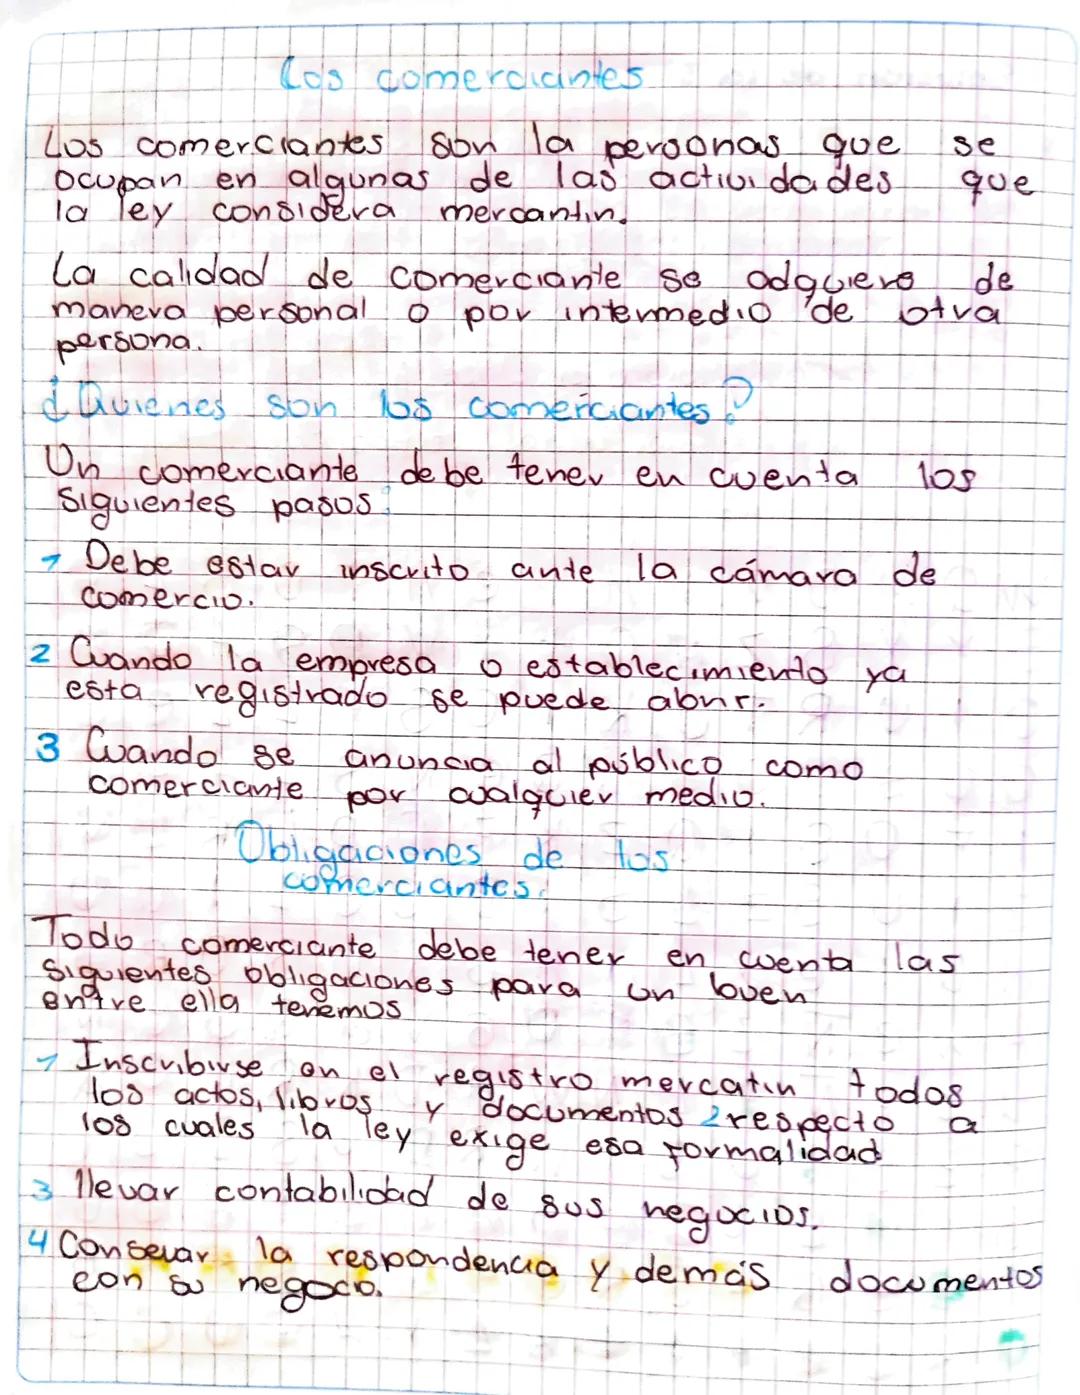 Los comerciantes
Los comerciantes son la personas que se
ocupan en algunas de las actividades que
la ley considera mercantin.
La calidad de comerciante se adquiere de
manera personal o por intermedio de otra
persona.
¿Quienes son los comerciantes?
Un comerciante debe tener en cuenta los
siguientes pasos:
1 Debe estar inscrito ante la cámara de
comercio.
2 Cuando la empresa o establecimiento ya
esta registrado se puede abrir.
3 Cuando se anuncia al público como
comerciante por cualquier medio.
Obligaciones de los
comerciantes.
Todo comerciante debe tener en cuenta las
siguientes obligaciones para un buen
entre ella tenemos
1 Inscribirse en el registro mercatin todos
los actos, libros y documentos 2 respecto a
los cuales la ley exige esa formalidad
3 llevar contabilidad de sus negocios.
4 Conservar la respondencia y demás documentos
con su negocio.